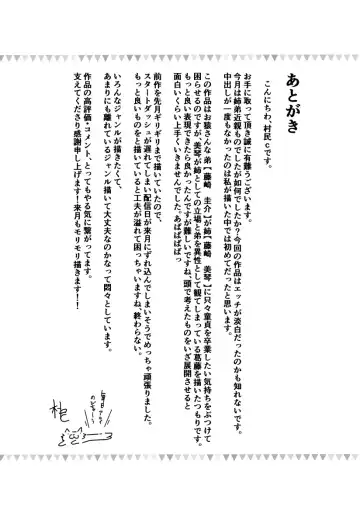 あとがき
こんにちわ、村民cです。
お手に取って頂き誠に有難うございます。
今月は姉弟近親ものでしたが如何でしたか？今回の作品はエッチが淡白だったのかも知れないです。
中出しが一度もなかったのは私が描いた中では初めてだったと思います。
この作品はお猿さんな弟【藤崎　圭介】が姉【藤崎　美琴】に只々童貞を卒業したい気持ちをぶつけて
困らせるのですが、美琴が姉としての立場と弟を異性として観てしまっている葛藤を描いたつもりです。
もっと良い表現できたら良かったんですが難しいですね、頭で考えたものをいざ展開させると
面白いくらい上手くいきませんでした、あばばばばっ
前作を先月ギリギリまで描いていたので、
スタートダッシュが遅れてしまい配信日が来月にずれ込んでしまいそうでめっちゃ頑張りました。
もっと良いものをと描いていると工夫が溢れて困っちゃいますね、終わらない。
いろんなジャンルが描きたくて、
あまりにも離れているジャンル描いて大丈夫なのかなって悶々としています。
作品の高評価・コメント、とってもやる気に繋がってます。
支えてくださり感謝申し上げます！来月もモリモリ描きます！！